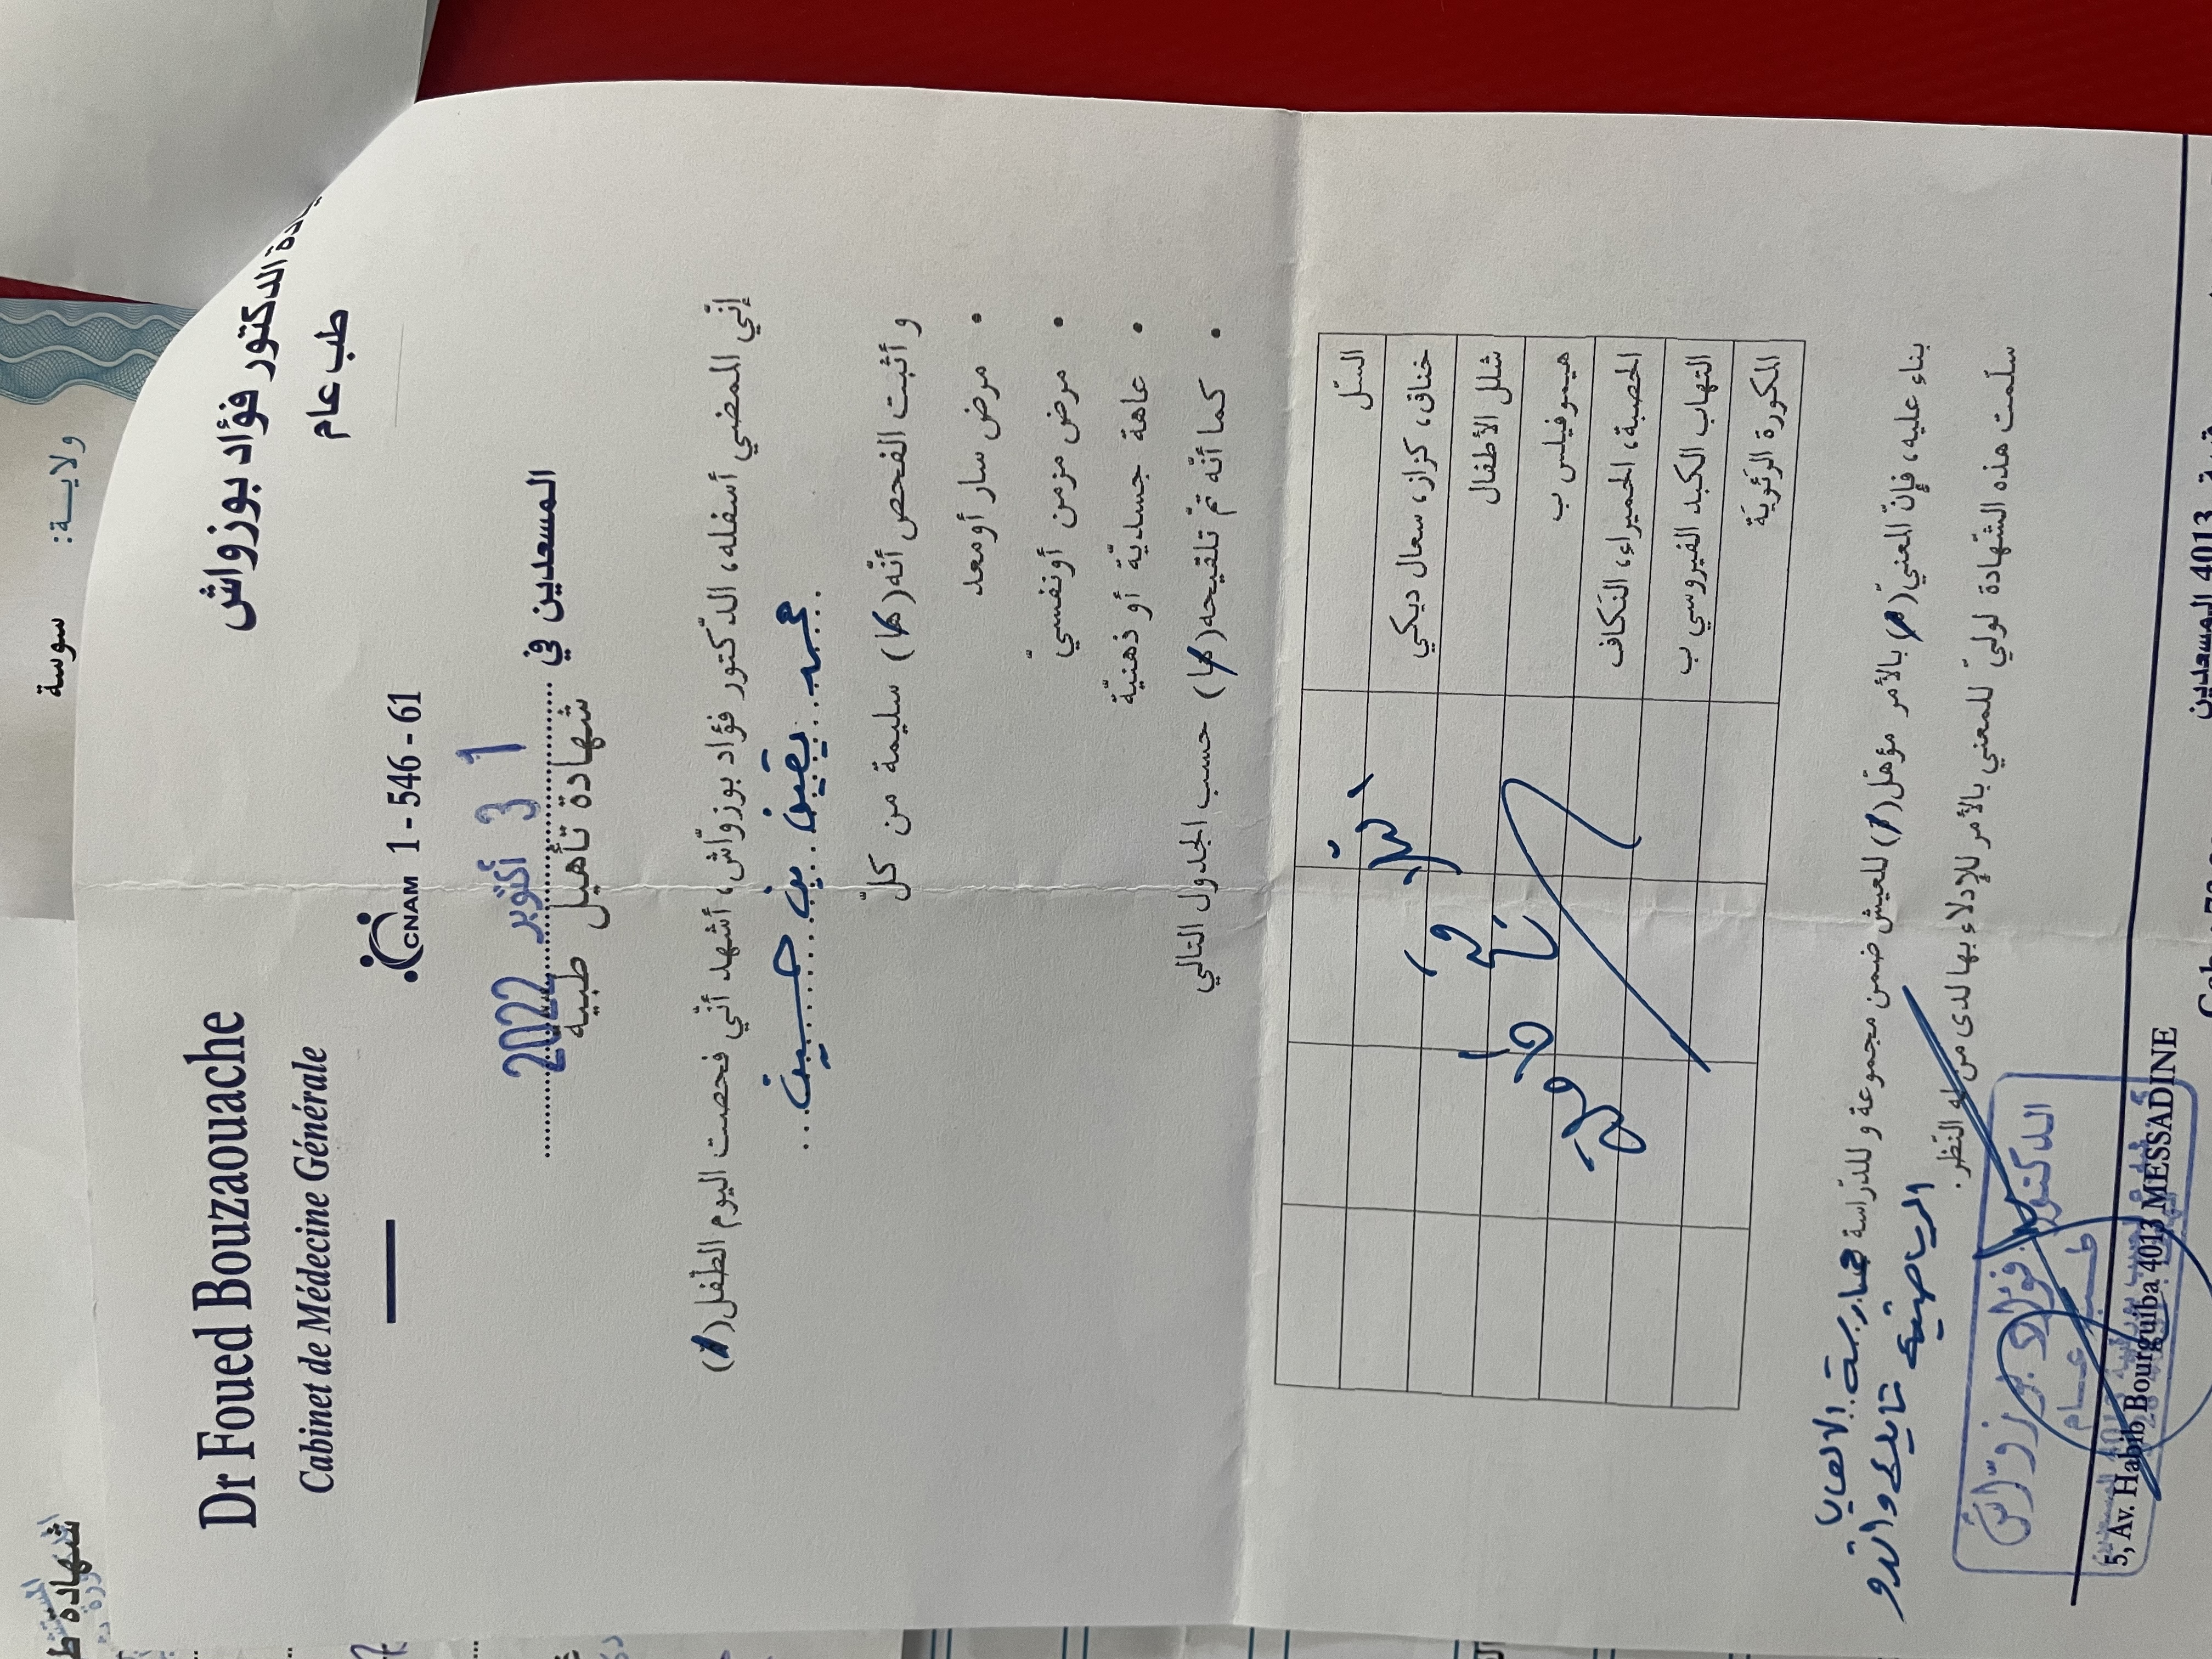 Dr Foued Bouzaouache
الدكتور فؤاد بوزواش
Cabinet de Médecine Générale
طب عام
CNAM 1 - 546 - 61
المسعدين في 1 3 أكتوبر 2022
شهادة تأهيل طبية
إنّي الممضي أسفله، الدّكتور فؤاد بوزوّاش، أشهد أنّي فحصت اليوم الطّفل(ة)
محمد يقين بن حسين
و أثبت الفحص أنّه(ها) سليمة من كلّ
• مرض سار أو معد
• مرض مزمن أو نفسيّ
• عاهة جسديّة أو ذهنيّة
• كما أنّه تمّ تلقيحه(ها) حسب الجدول التالي
السّل
خناق، كزاز، سعال ديكي
شلل الأطفال
هيموفيلس ب
الحصبة، الحميراء، النكاف
التهاب الكبد الفيروسي ب
المكورة الرّئويّة
بناء عليه، فإنّ المعنيّ(ة) بالأمر مؤهّل(ة) للعيش ضمن مجموعة و للدّراسة
ممارسة الألعاب
الرياضية تايكواندو
سلّمت هذه الشّهادة لوليّ للمعني بالأمر للإدلاء بها لدى من له النّظر.
الدكتور
فؤاد بوزوّاش
طب عام
5, Av. Habib Bourguiba 4013 MESSADINE
4013 المسعدين
ولايـة:
سوسة
شهادة